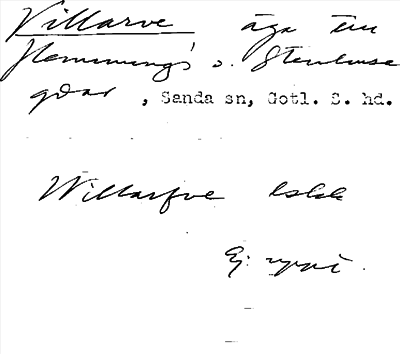 Villarve äga till
Flemmings o. Stenhuse
gdar, Sanda sn, Gotl. S. hd.
Willarfve
Ej